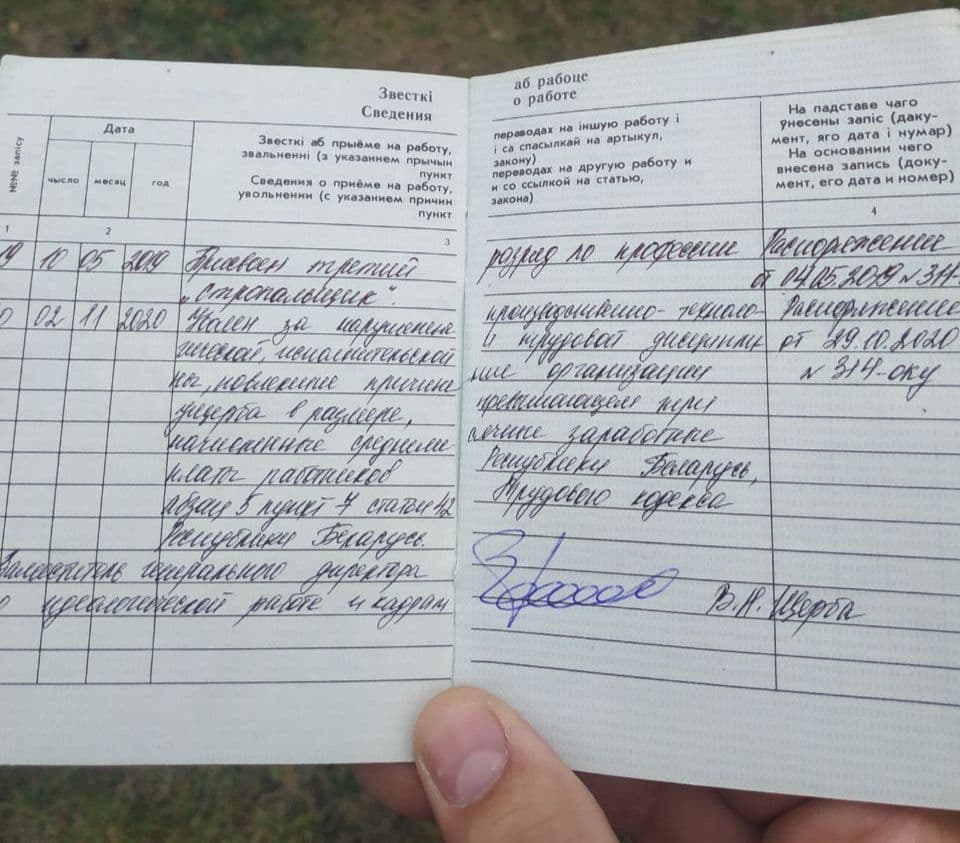 Звесткі аб рабоце
Сведения о работе
нумар запісу
Дата
чысло месяц год
Звесткі аб прыёме на работу, пераводах на іншую работу і
звальненні (з указаннем прычын і са спасылкай на артыкул,
пункт закону)
Сведения о приёме на работу, переводах на другую работу и
увольнении (с указанием причин и со ссылкой на статью,
пункт закона)
На падставе чаго
ўнесены запіс (даку-
мент, яго дата і нумар)
На основании чего
внесена запись (доку-
мент, его дата и номер)
1 2 3 4
9 10 05 2019 Присвоен третий разряд по профессии Распоряжение
„стропальщик“. от 04.05.2019 № 314-
0 02 11 2020 Уволен за нарушение производственно-техноло Распоряжение
гической, исполнительской и трудовой дисципли от 29.10.2020
ны, повлекшие причинение организации № 314-оку
ущерба в размере, превышающем три
начисленные среднемесячные заработные
платы работников Республики Беларусь,
абзац 5 пункт 7 статьи 42 Трудового кодекса
Республики Беларусь.
Заместитель генерального директора
о идеологической работе и кадрам В.Н. Щерба